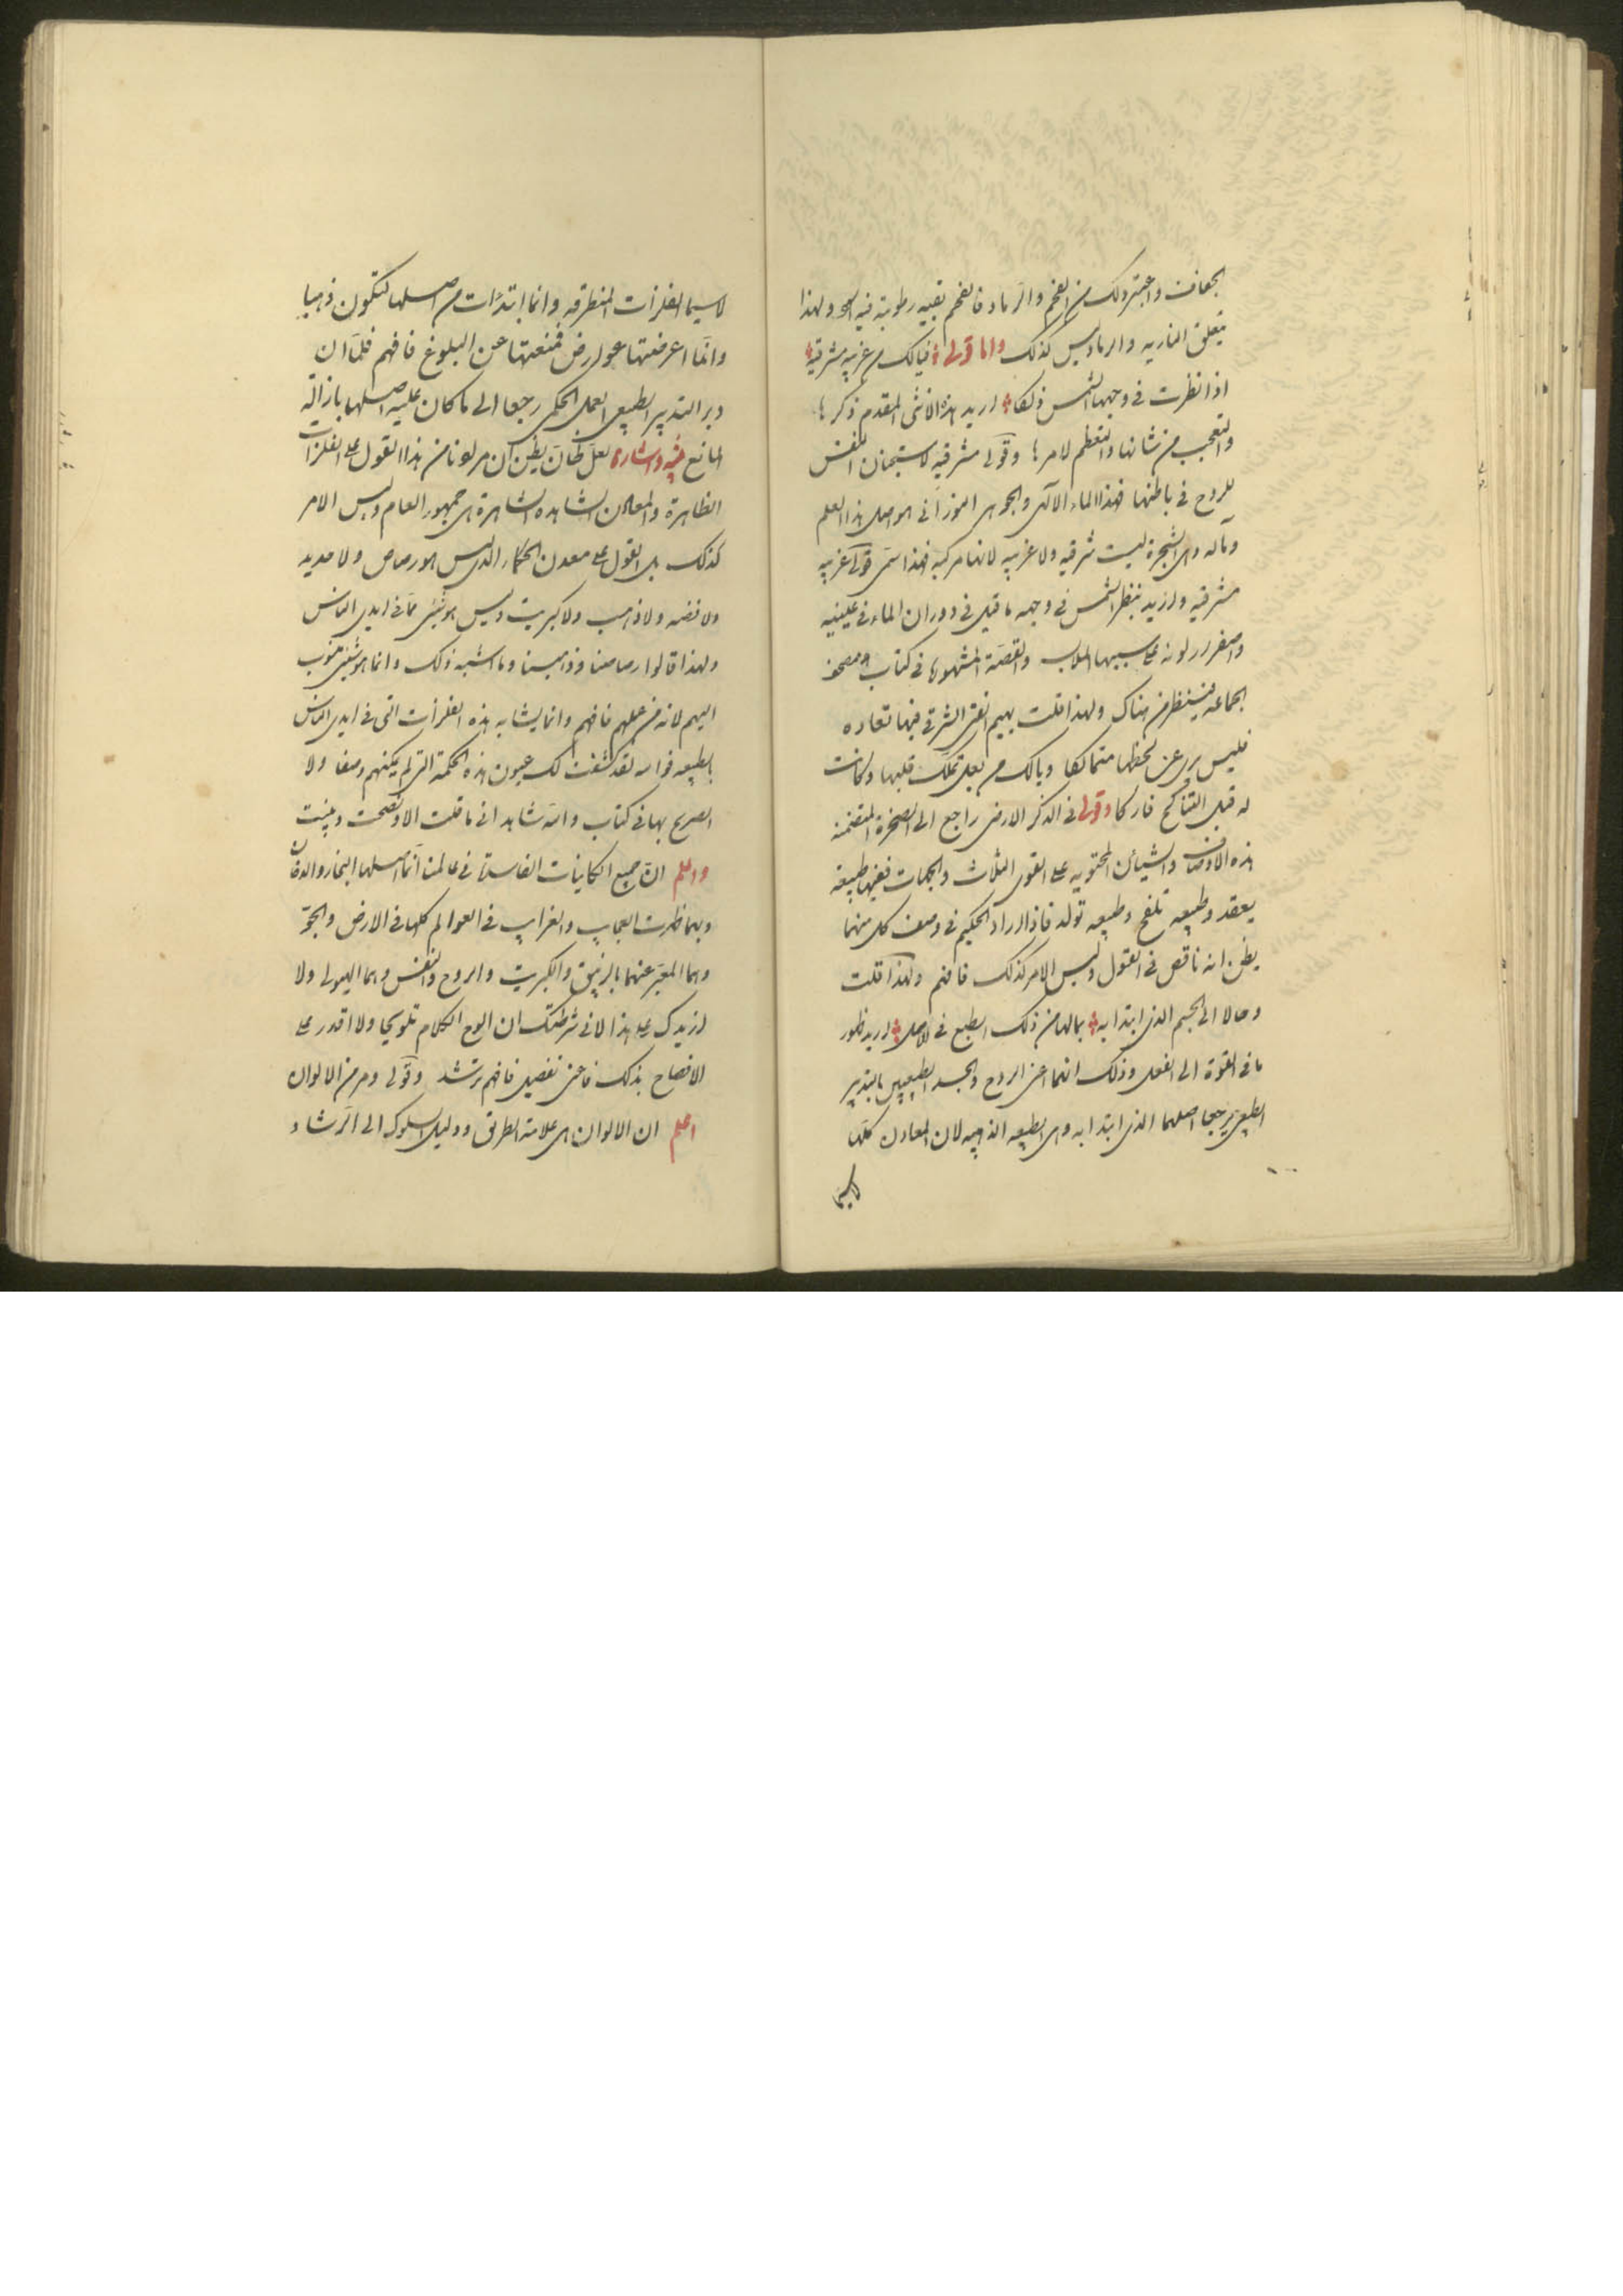 الجفاف واعتبر ذلك من الفحم والرماد فالفحم بقيه رطوبة فيه ولهذا
يتعلق الناريه والرماد ليس كذلك واما قولى فيالك من غربيه مشرقية
اذا نظرت فى وجهها الشمس ذكا اريد هذه الانثى المقدم ذكرها
والتعجب من شانها والتعظم لامرها وقولى مشرقيه لاستجنان النفس
للروح فى باطنها فهذا الماء الآلهى والجوهر النورانى هو اصل هذا العلم
ومآله وهى الشجرة ليست شرقيه ولا غربيه لانها مركبه فهذا سمى قولى غربيه
مشرقيه واريد بنظر الشمس فى وجهه ما قيل فى دوران الماء فى عينيه
واصفرار لونه على سببها الملاب والقصة المشهورة فى كتاب مصحف
الجماعه فينظر من هناك ولهذا قلت يهيم الفتى الشرقى فيها تعاده
فليس يرى عن لحظها متماسكا ويالك من بعل تملك قلبها وكانت
له قبل التناكح فاركا وقولى فى الذكر الارضى راجع الى الصخرة المتضمنة
هذه الاوصاف والشيأن المحتويه على القوى الثلاث والجهات ففيها طبيعة
يعقد وطبيعه تلقح وطبيعه تولد فاذا اراد الحكيم فى وصف كل منهما
يظن انه ناقص فى القول وليس الامر كذلك فافهم ولهذا قلت
وحالا الى الجسم الذى ابتدا به بمالهما من ذلك الطبع فى الاصل اريد ظهور
ما فى القوة الى الفعل وذلك انهما اعنى الروح والجسد الطبيعيين بالتدبير
الطبيعى يرجعا اصلهما الذى ابتدا به وهى الطبيعه الذهبيه لان المعادن كلها
لاسيما
لاسيما الفلزات المنطرقه وانما ابتدأت من اصلها لتكون ذهبا
وانما اعرضتها عوارض فمنعتها عن البلوغ فافهم فلما ان
دبر التدبير الطبيعى العمل الحكمى رجعا الى ما كان عليه اصلها بازالة
المانع تنبيه واشارة لعل ظان يظن ان مرادنا من هذا القول على الفلزات
الظاهرة والمعادن المشاهده الشاهرة بين جمهور العام وليس الامر
كذلك بل القول على معدن الحكماء الذى ليس هو رصاص ولا حديد
ولا فضه ولا ذهب ولا كبريت وليس هو شئ مما فى ايدى الناس
ولهذا قالوا رصاصنا وذهبنا وما اشبه ذلك وانما هو شئ منسوب
اليهم لانه من عملهم فافهم وانما يشابه هذه الفلزات التى فى ايدى الناس
بالطبيعه فوالله لقد كشفت لك عيون هذه الحكمة التى لم يمكنهم وصفا ولا
الصريح بها فى كتاب والله شاهد انى ما قلت الا ونصحت وبينت
واعلم ان جميع الكاينات الفاسدة فى عالمنا انما اصلها البخار والدخان
وبهما ظهرت العجايب والغرايب فى العوالم كلها فى الارض والجو
وهما المعبر عنهما بالزيبق والكبريت والروح والنفس وهما الهيولى ولا
ازيدك على هذا لانى شرطتك ان الوح الكلام تلويحا ولا اقدر على
الافصاح بذلك فاعنى تفصيل فافهم ترشد وقولى ومر من الالوان
اعلم ان الالوان هى علامة الطريق ودليل السلوك الى الرشاد